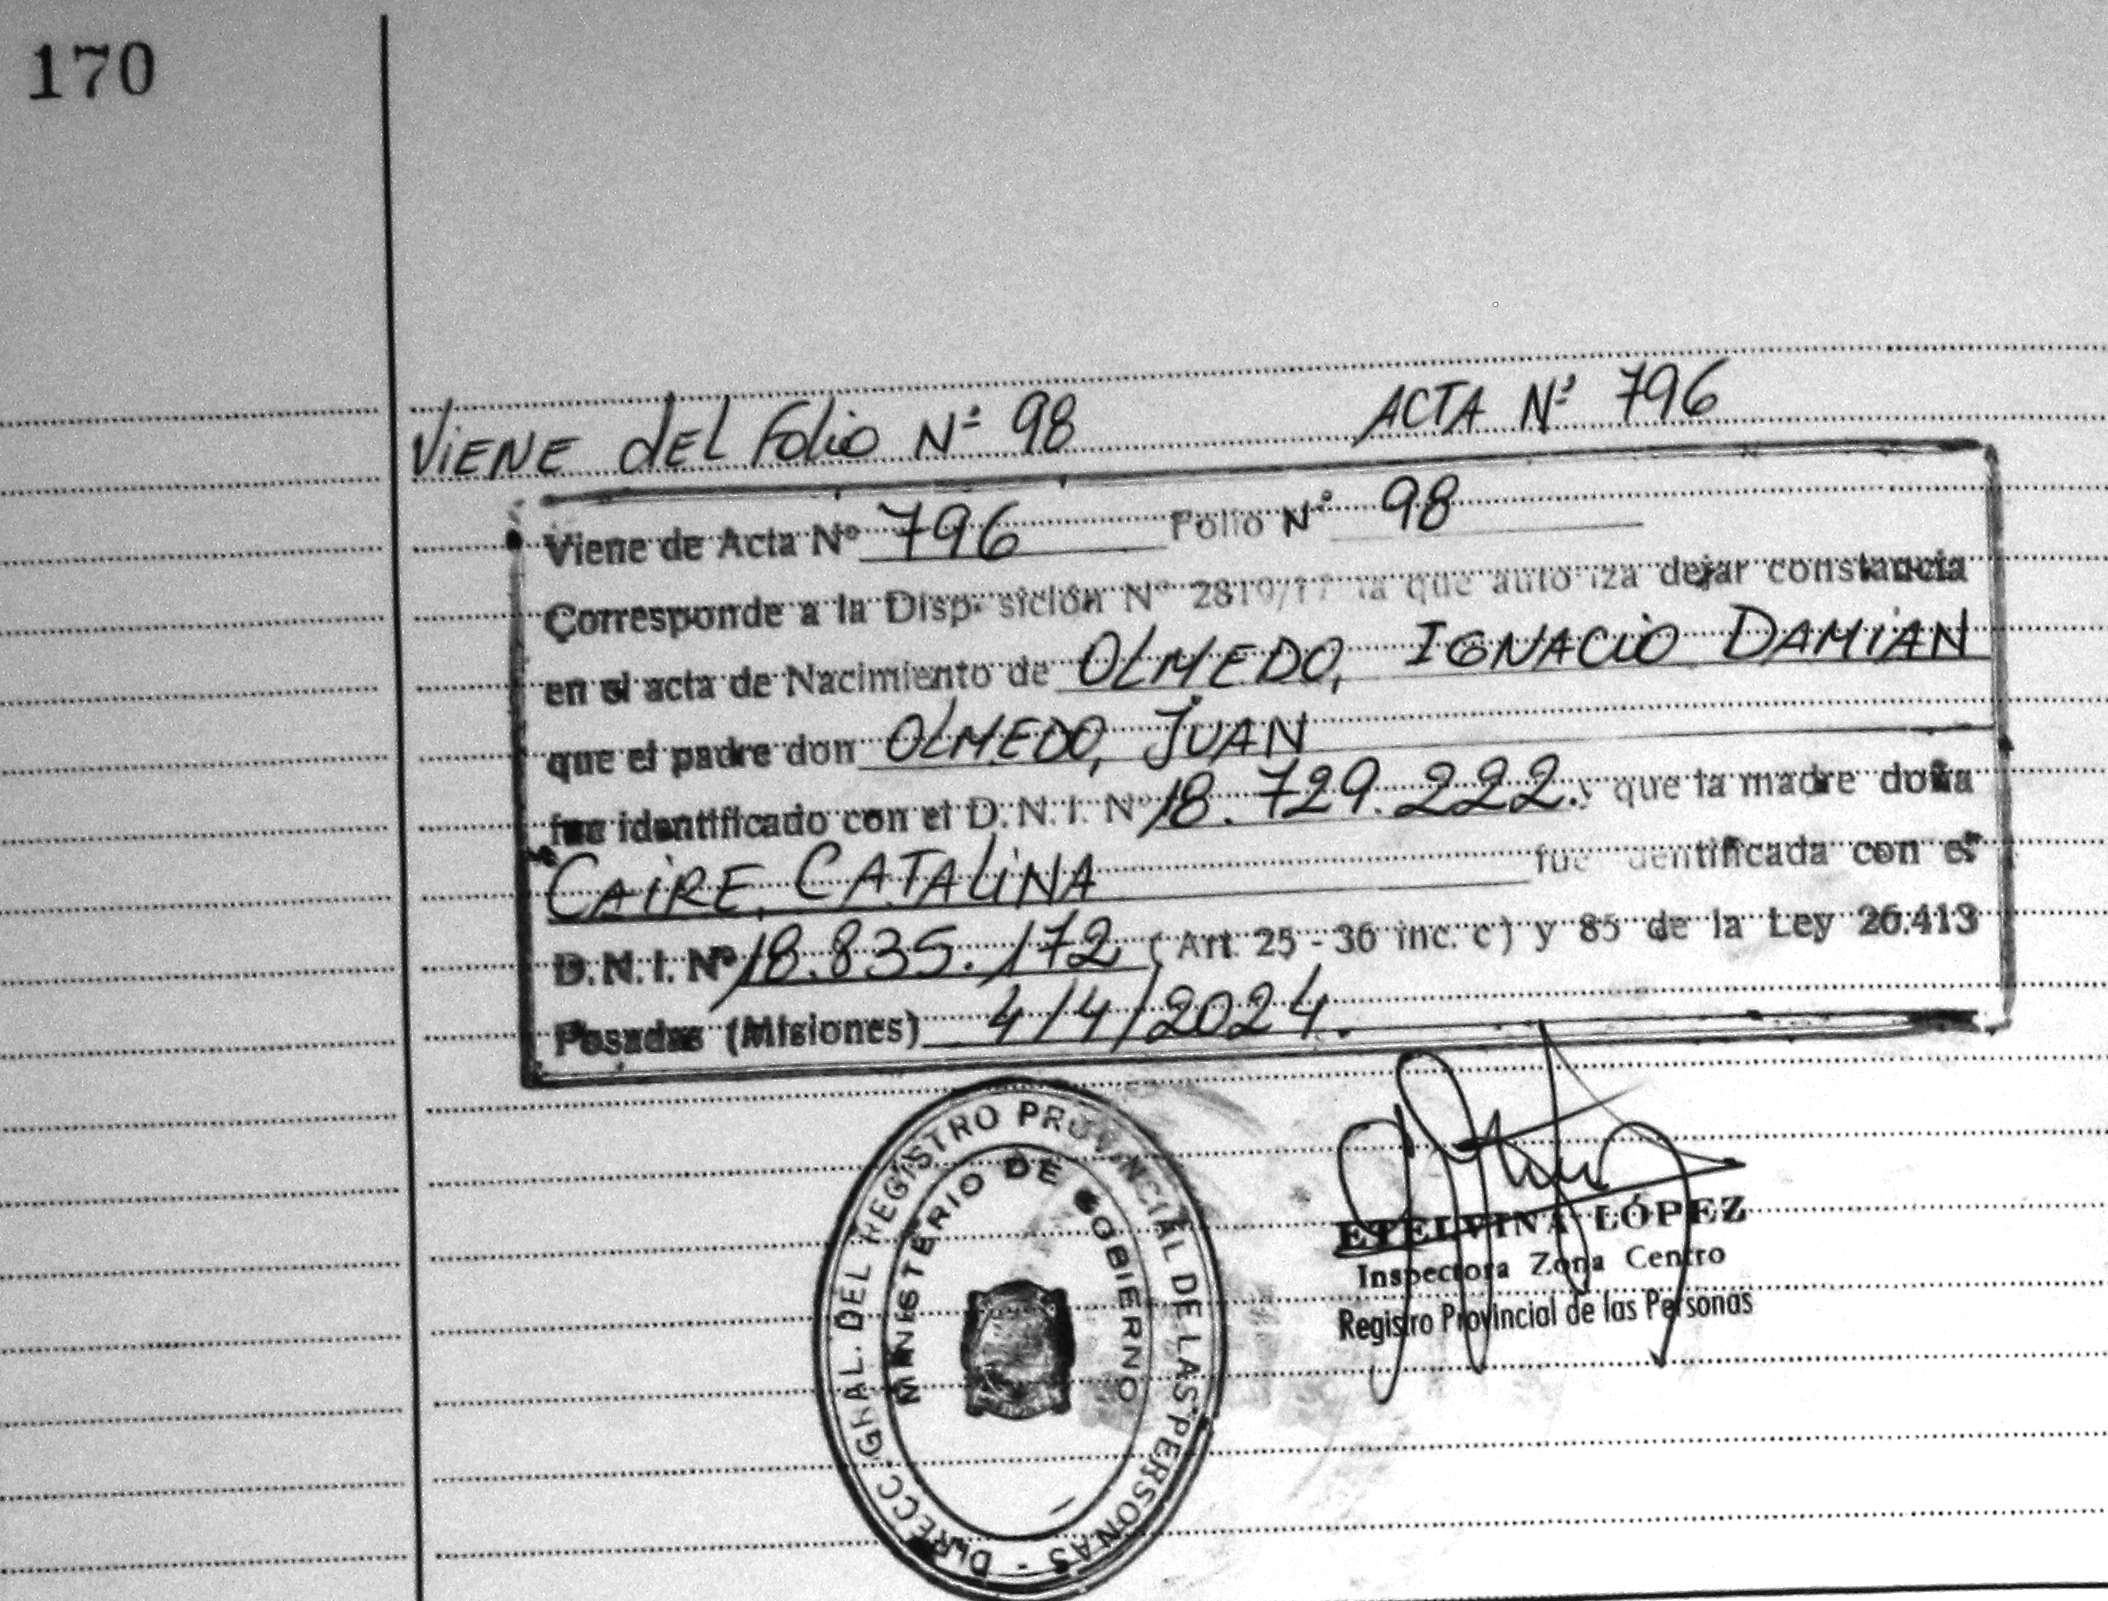 170
VIENE DEL FOLIO Nº 98 ACTA Nº 796
Viene de Acta Nº 796 Folio Nº 98
Corresponde a la Disposición Nº 2810/17 la que autoriza dejar constancia
en el acta de Nacimiento de OLMEDO, IGNACIO DAMIAN
que el padre don OLMEDO, JUAN
fue identificado con el D.N.I. Nº 18.729.222. y que la madre doña
CAIRE, CATALINA fue identificada con el
D.N.I. Nº 18.835.172 (Art. 25 - 36 inc. c) y 85 de la Ley 26.413
Posadas (Misiones) 4/4/2024.
DIRECC. GRAL. DEL REGISTRO PROVINCIAL DE LAS PERSONAS -
MINISTERIO DE GOBIERNO
ETELVINA LÓPEZ
Inspectora Zona Centro
Registro Provincial de las Personas